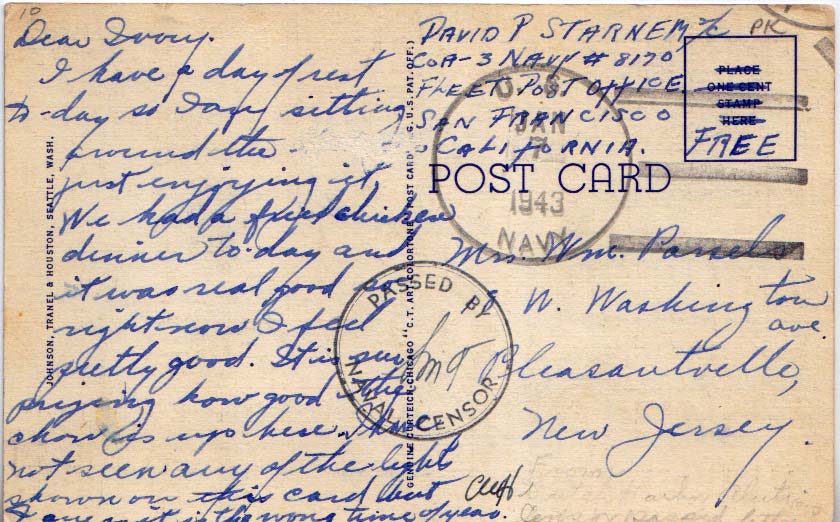 10
Dear Ivory.
I have a day of rest
to-day so I am sitting
around the
just enjoying it.
We had a fried chicken
dinner to-day and
it was real good so
right now I feel
pretty good. It is sur
prising how good the
chow is up here. I have
not seen any of the lights
shown on this card but
I guess it is the wrong time of year.
JOHNSON, TRANEL & HOUSTON, SEATTLE, WASH.
GENUINE CURTEICH-CHICAGO "C.T. ART-COLORTONE" POST CARD (REG. U.S. PAT. OFF.)
DAVID P STARNEM
COA-3 NAVY # 8170
FLEET POST OFFICE.
SAN FRANCISCO
CALIFORNIA.
PK
PLACE
ONE CENT
STAMP
HERE
FREE
U.S.
JAN
7
1943
NAVY
POST CARD
Mrs. Wm. Parsels
W. Washington
ave
Pleasantville,
New Jersey.
PASSED BY
NAVAL CENSOR
From